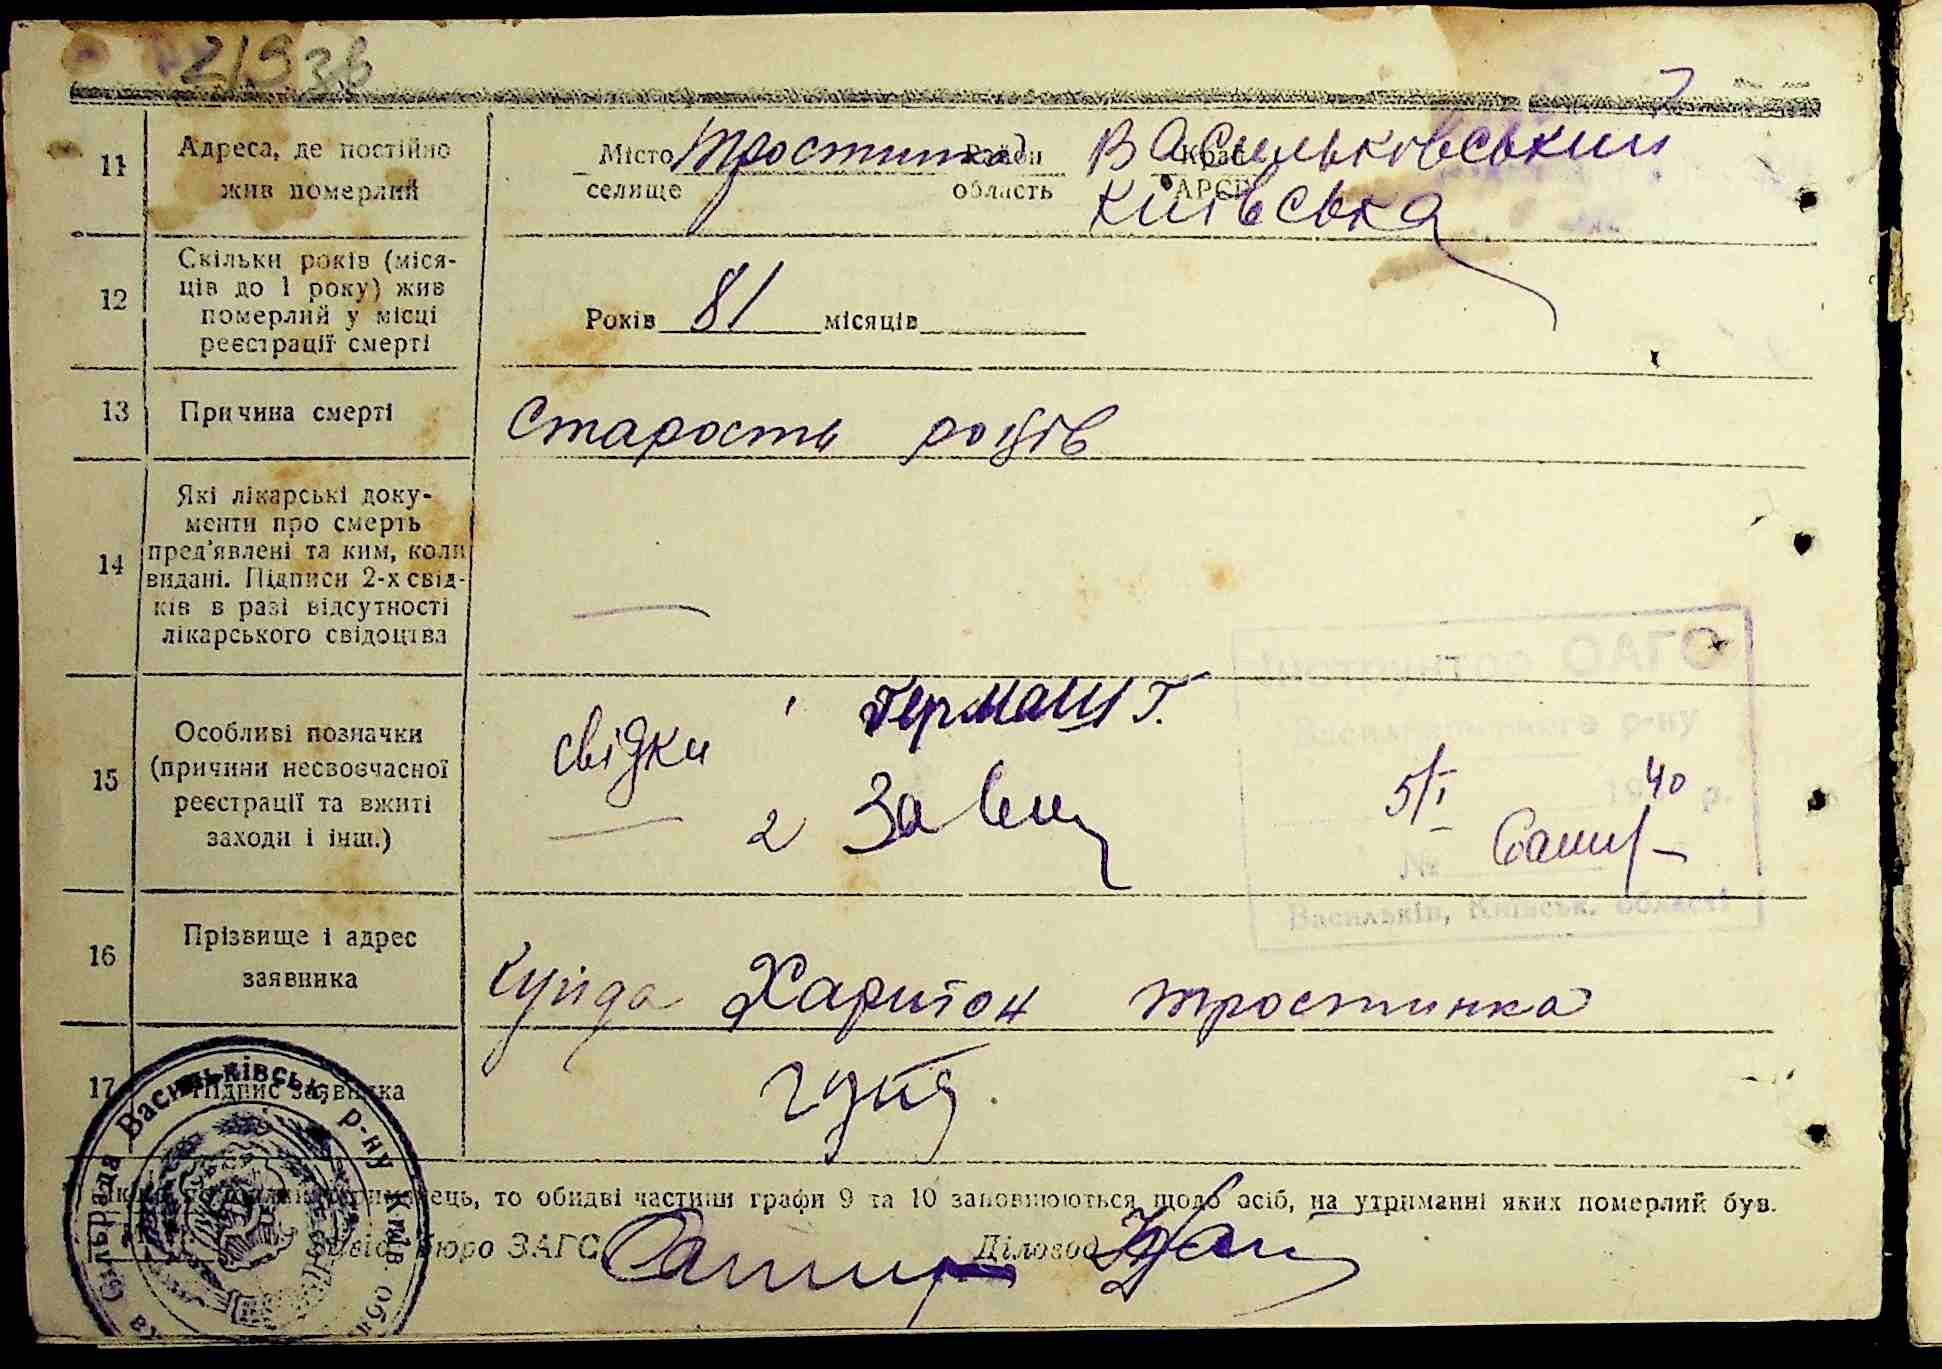 21936
11
Адреса, де постійно
жив померлий
Місто Тростинка Район Васильковський Край
селище область Київська АРСР
12
Скільки років (міся-
ців до 1 року) жив
померлий у місці
реєстрації смерті
Років 81 місяців
13
Причина смерті
Старость років
14
Які лікарські доку-
менти про смерть
пред'явлені та ким, коли
видані. Підписи 2-х свід-
ків в разі відсутності
лікарського свідоцтва
15
Особливі позначки
(причини несвоєчасної
реєстрації та вжиті
заходи і інш.)
свідки 1 Германш Г.
2
Інструктор ОАГС
Васильківського р-ну
5/I 1940 р.
№
Васильків, Київськ. області
16
Прізвище і адрес
заявника
Харитон тростинка
17
Підпис заявника
то обидві частини графи 9 та 10 заповнюються щодо осіб, на утриманні яких померлий був.
бюро ЗАГС
Діловод
Сільрада Васильківськ. р-ну Київ. обл.